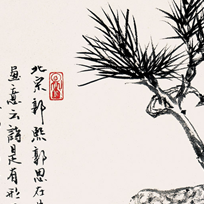 北宋郭熙郭思在
画意云诗是有形